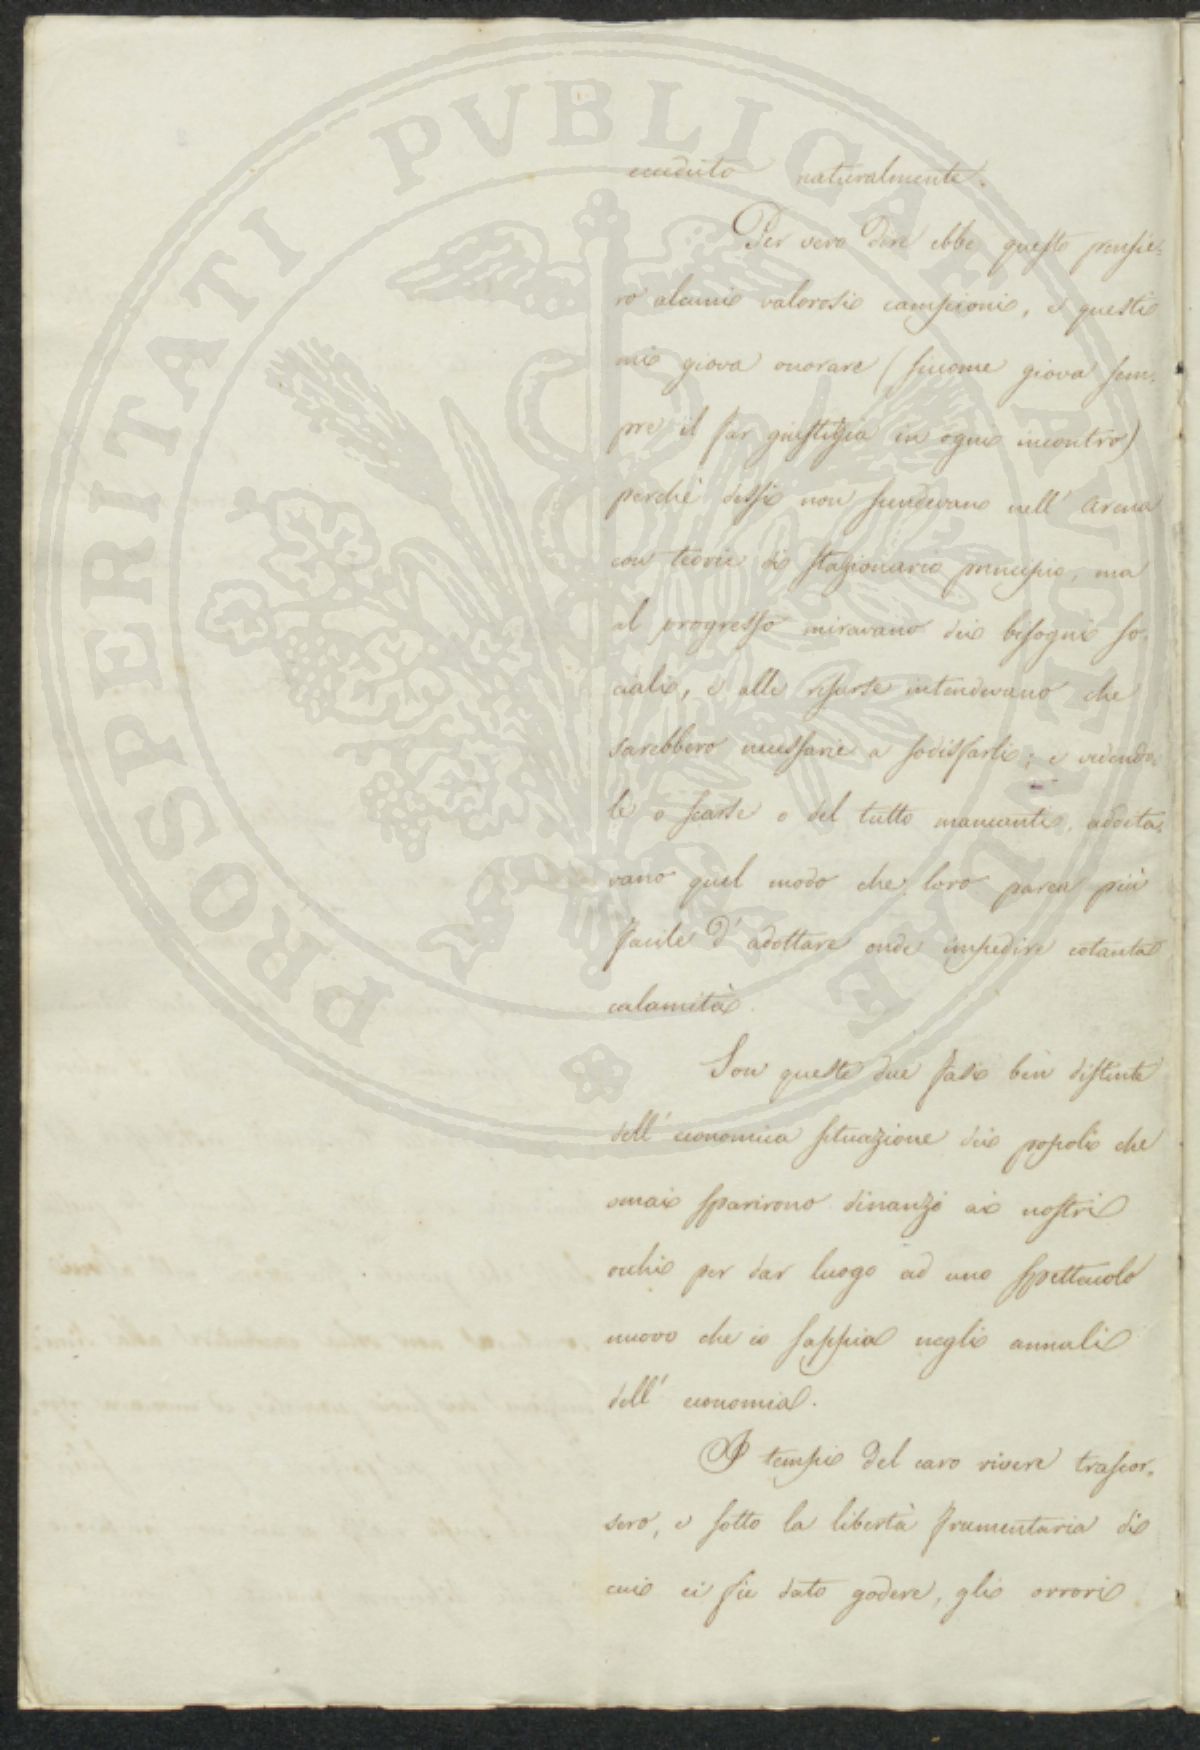 PROSPERITATI PVBLICAE AVGENDAE
ecceduto naturalmente.
Per vero dire ebbe questo pensie-
ro alcuni valorosi campioni, e questi
mi giova onorare (siccome giova sem-
pre il far giustizia in ogni incontro)
perchè dessi non scendevano nell' Arena
con teorie di stazionario principio, ma
al progresso miravano dei bisogni so-
ciali, e alle risorse intendevano che
sarebbero necessarie a sodisfarli; e vedendo-
le o scarse o del tutto mancanti, addita-
vano quel modo che loro parea più
facile d' adottare onde impedire cotanta
calamità.
Son queste due fasi ben distinte
dell' economica situazione dei popoli che
omai sparirono dinanzi ai nostri
occhi per dar luogo ad uno spettacolo
nuovo che io sappia negli annali
dell' economia.
I tempi del caro vivere trascor-
sero, e sotto la libertà frumentaria di
cui ci fu dato godere, gli orrori